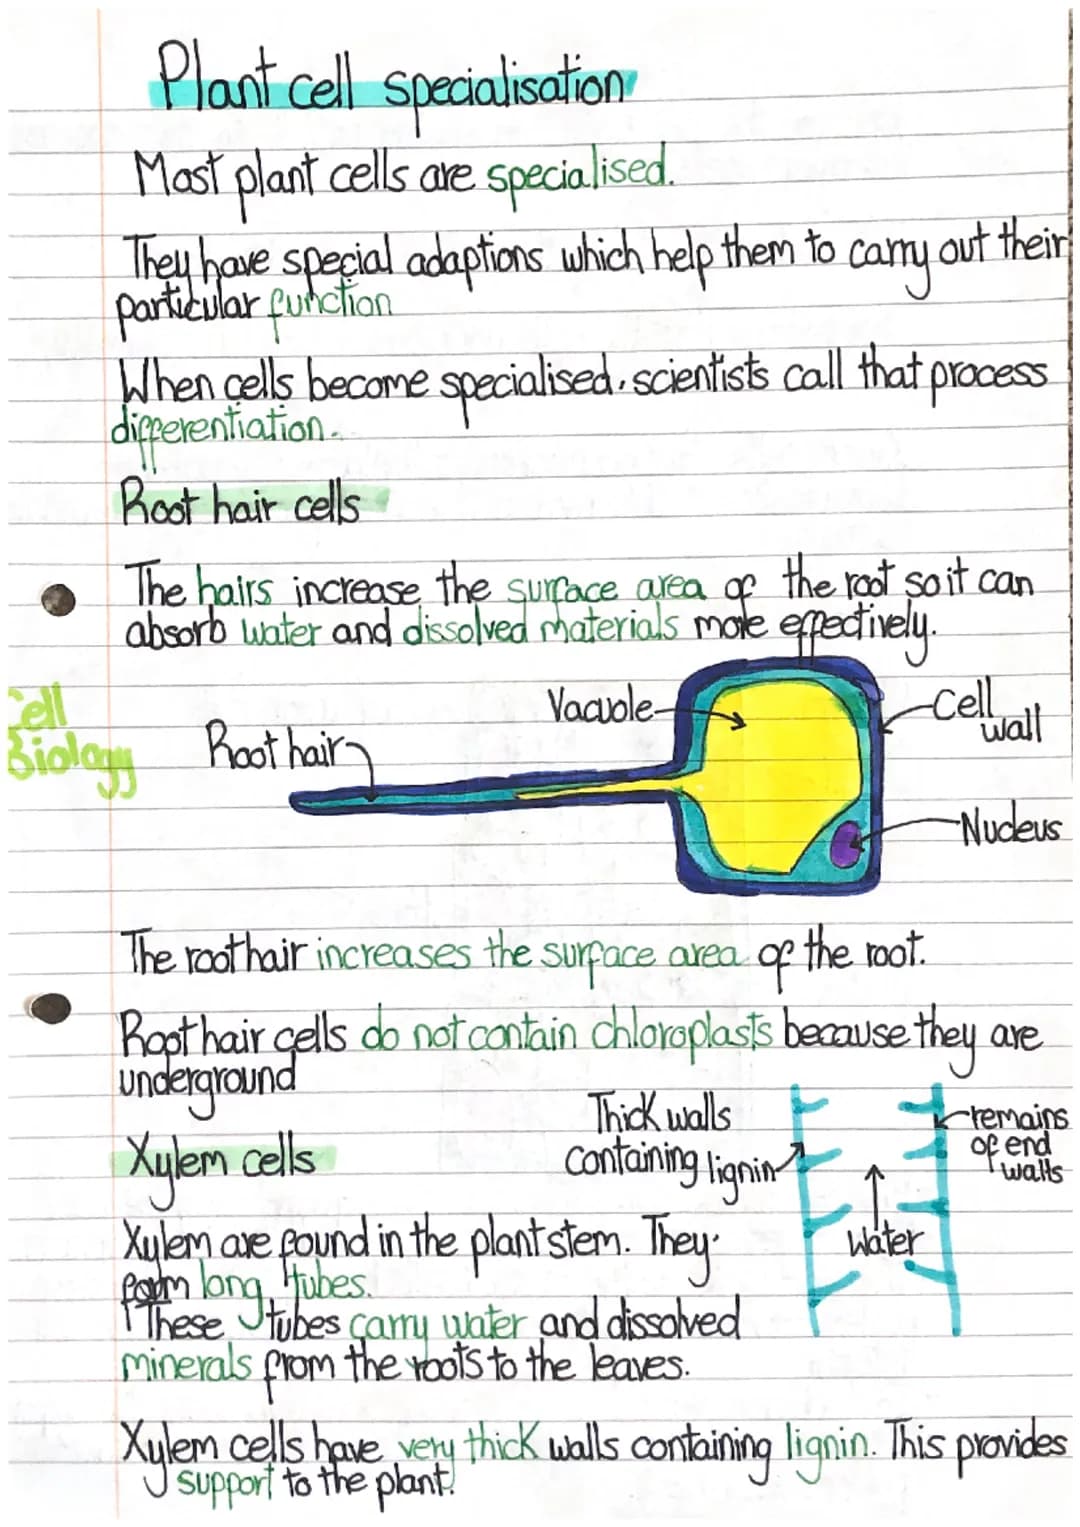 Plant cell specialisation
Most plant cells are specialised.
They have special adaptions which help them to carry out their
particular function
When cells become specialised, scientists call that process
differentiation.
Root hair cells
The hairs increase the surface area of the root so it can
absorb water and dissolved materials more effectively.
Cell
Biology
Root hair
Vacuole
Cell
wall
Nucleus
The root hair increases the surface area of the root.
Root hair cells do not contain chloroplasts because they are
underground
Xylem cells
Thick walls
containing lignin
remains
of end
walls
Water
Xylem are found in the plant stem. They
form long tubes.
These tubes carry water and dissolved
minerals from the roots to the leaves.
Xylem cells have very thick walls containing lignin. This provides
support to the plant.